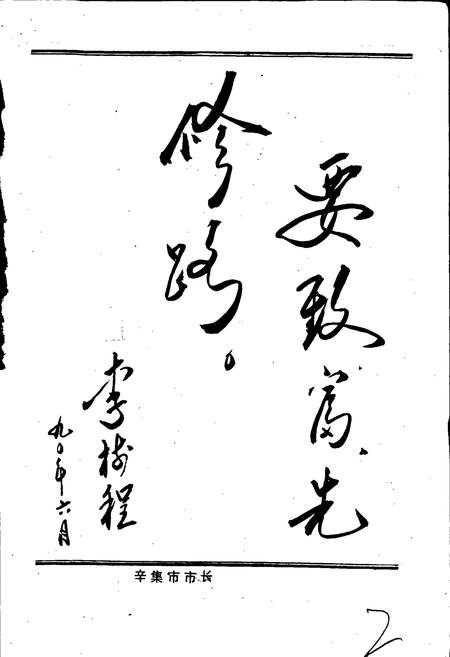 要致富，先
修路。
李树程
九〇年六月
辛集市市长
2